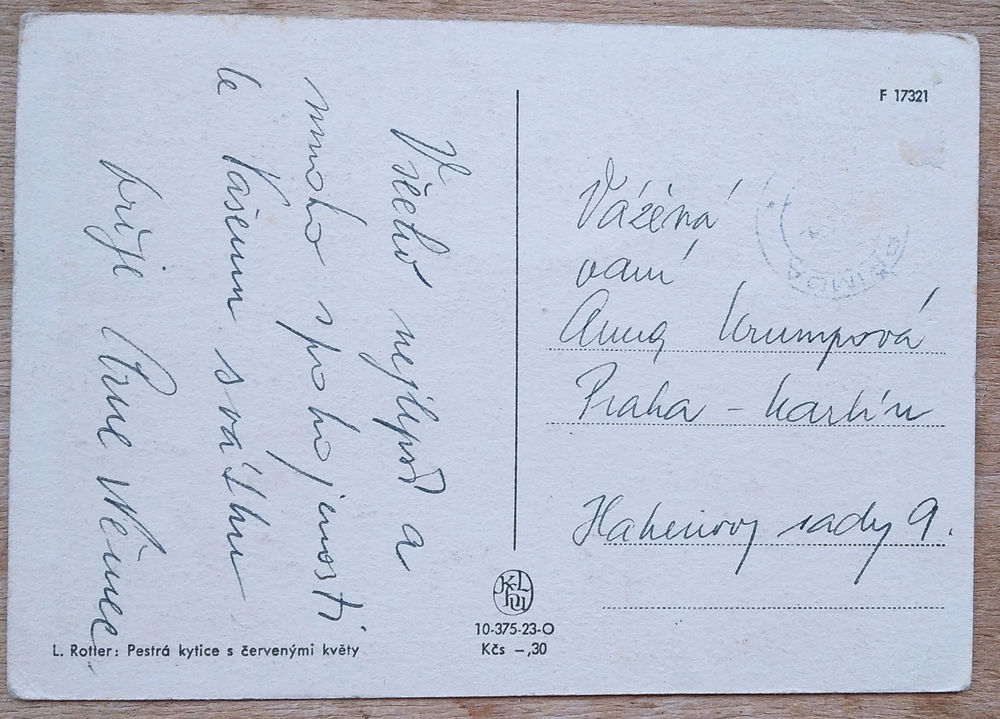 Všecko nejlepší a
mnoho spokojenosti
k Vašemu svátku
přeje Arne Němec
F 17321
Vážená
paní
Anna Krumpová
Praha - Karlín
Hakenovy sady 9.
10-375-23-O
Kčs –,30
L. Rotter: Pestrá kytice s červenými květy